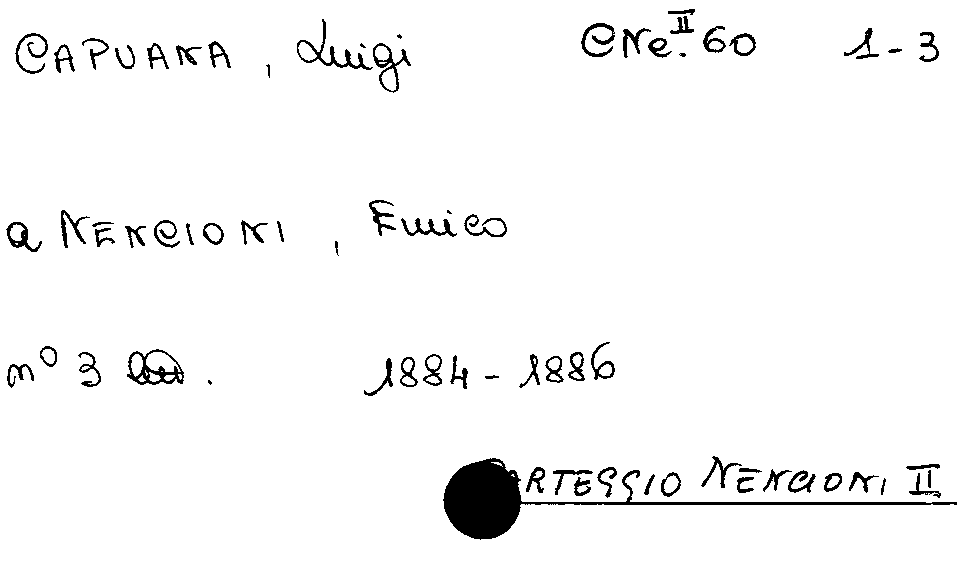 CAPUANA, Luigi CNe.II 60 1-3
a NENCIONI, Enrico
n° 3 .
1884 - 1886
CARTEGGIO NENCIONI II